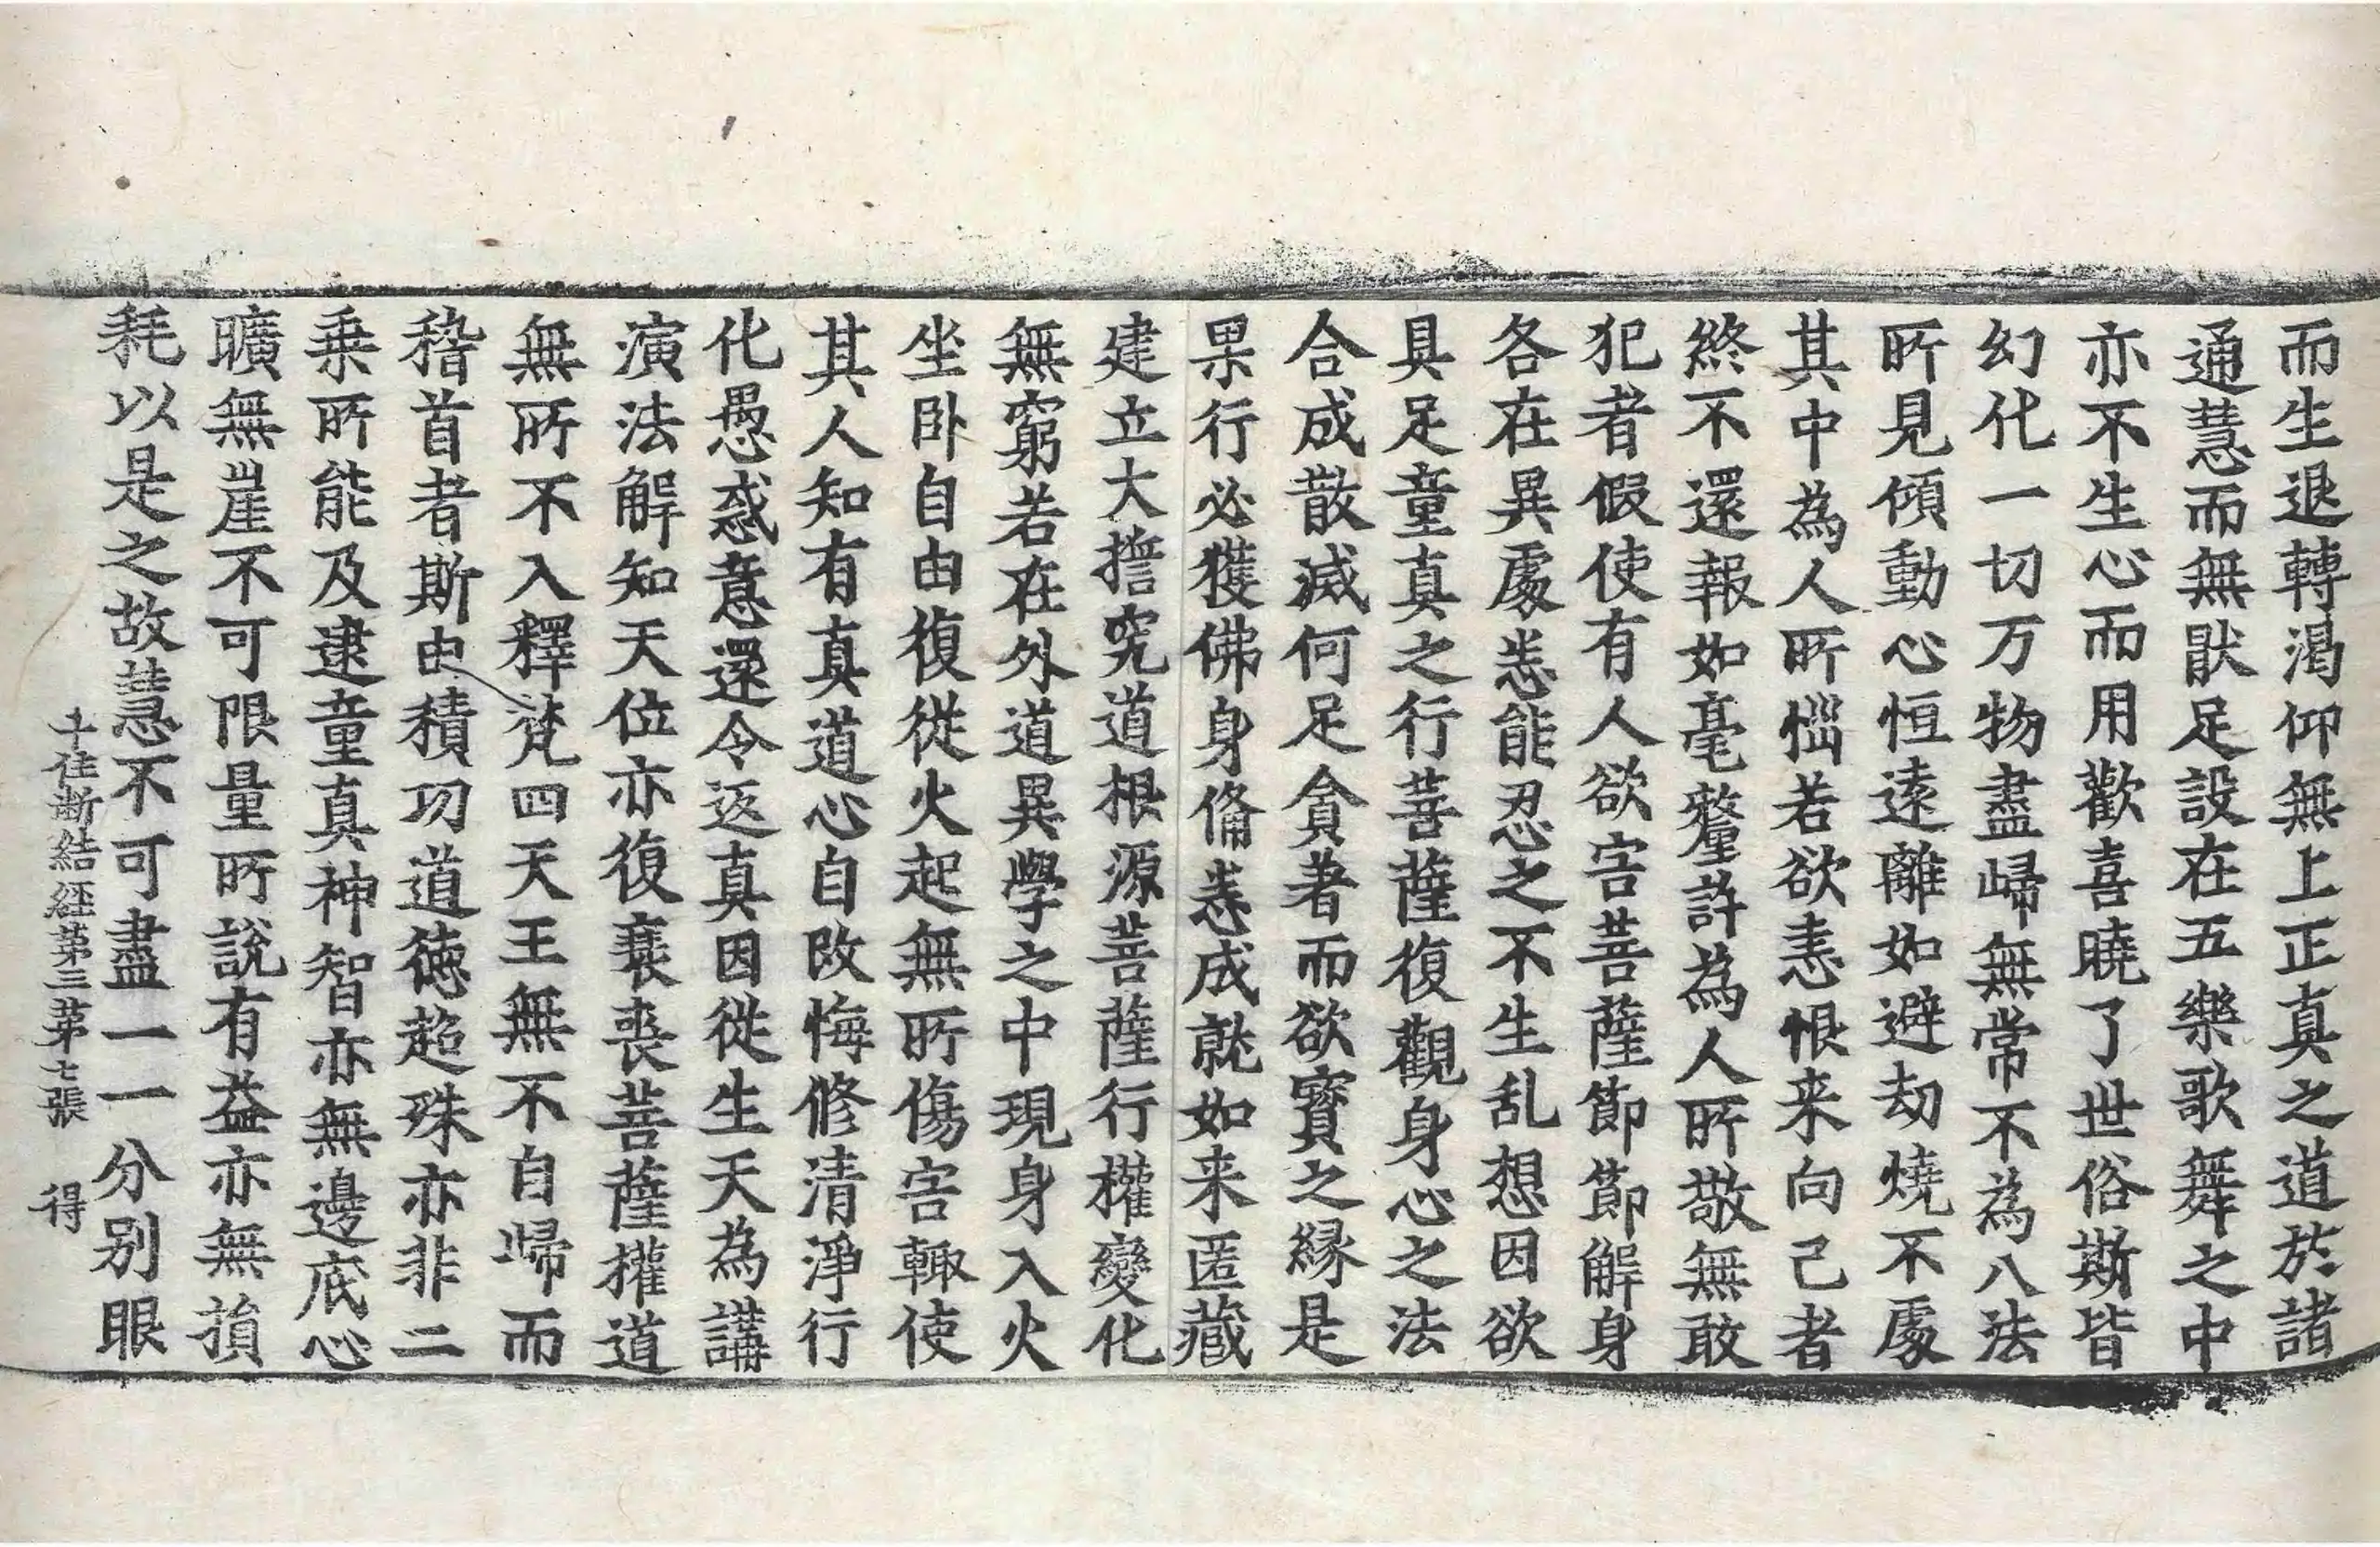 而生退轉渴仰無上正真之道於諸
通慧而無猒足設在五樂歌舞之中
亦不生心而用歡喜曉了世俗斯皆
幻化一切万物盡歸無常不為八法
所見傾動心恒遠離如避劫燒不處
其中為人所惱若欲恚恨来向己者
終不還報如毫釐許為人所敬無敢
犯者假使有人欲害菩薩節節解身
各在異處悉能忍之不生乱想因欲
具足童真之行菩薩復觀身心之法
合成散滅何足貪著而欲寳之縁是
果行必獲佛身俻悉成就如来匿藏
建立大擔究道根源菩薩行權變化
無窮若在外道異學之中現身入火
坐卧自由復從火起無所傷害輙使
其人知有真道心自改悔修清淨行
化愚惑意還令返真因從生天為講
演法解知天位亦復衰喪菩薩權道
無所不入釋梵四天王無不自歸而
稽首者斯由積功道德超殊亦非二
乗所能及逮童真神智亦無邊底心
曠無崖不可限量所說有益亦無損
耗以是之故慧不可盡一一分別眼
十住断結經第三第七張 得